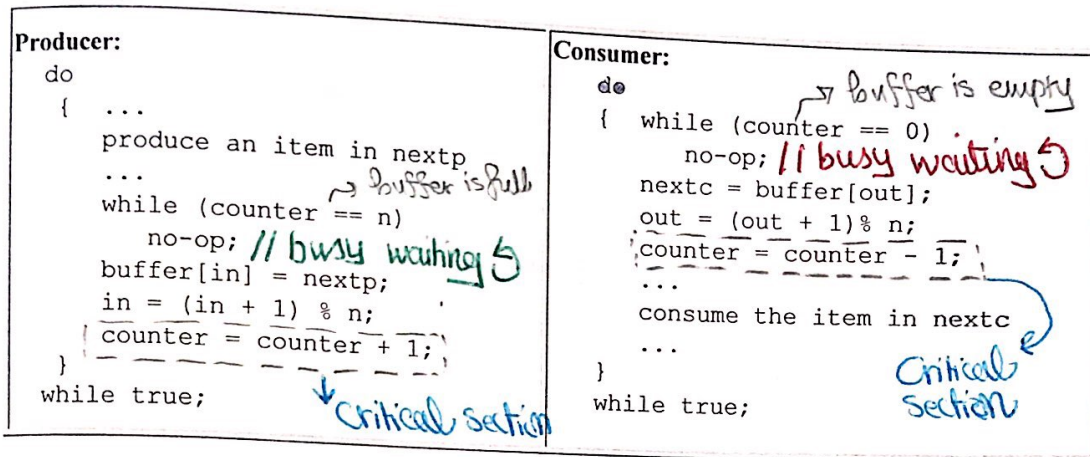 Producer:
do
{ ...
produce an item in nextp
...
buffer is full
while (counter == n)
no-op; // busy waiting
buffer[in] = nextp;
in = (in + 1) % n;
counter = counter + 1;
}
while true;
Critical section
Consumer:
do
buffer is empty
{ while (counter == 0)
no-op; // busy waiting
nextc = buffer[out];
out = (out + 1)% n;
counter = counter - 1;
...
consume the item in nextc
...
}
while true;
Critical
section